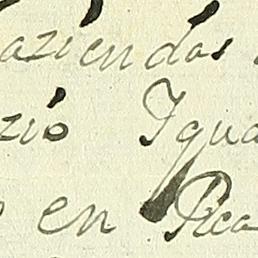 aziendas
zio Igua
o en Rca